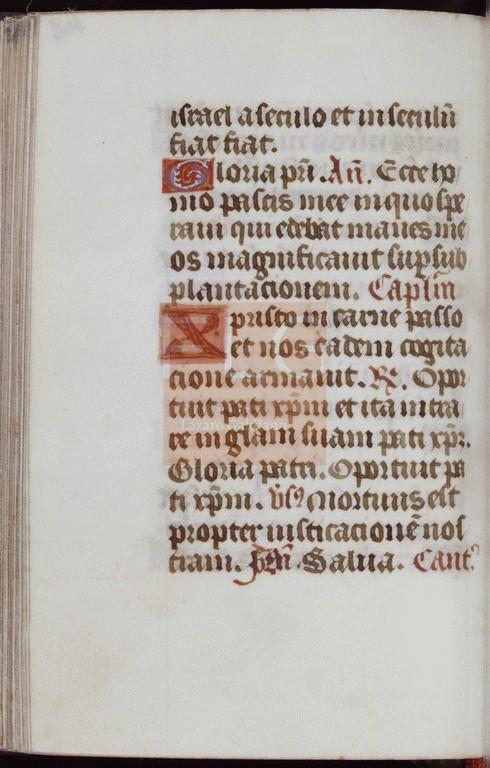 israel a seculo et in seculū
fiat fiat.
Gloria pr̄i. An̄. Ecce ho
mo pascis mee in quo spe
raui qui edebat manes me
os magnificauit sup̱ sub
plantacionem. Caplm̄
Xpristo in carne passo
et nos eadem cogita
cione armanit. ℟. Opor
tuit pati xp̄m et ita intra
re in gl̄am suam pati xp̄r.
Gloria patri. Oportuit pa
ti xp̄m. Vs Mortuus est
propter iusticacionē nos
tram. ps̄ Salua. Cant
Lázaro Galdiano